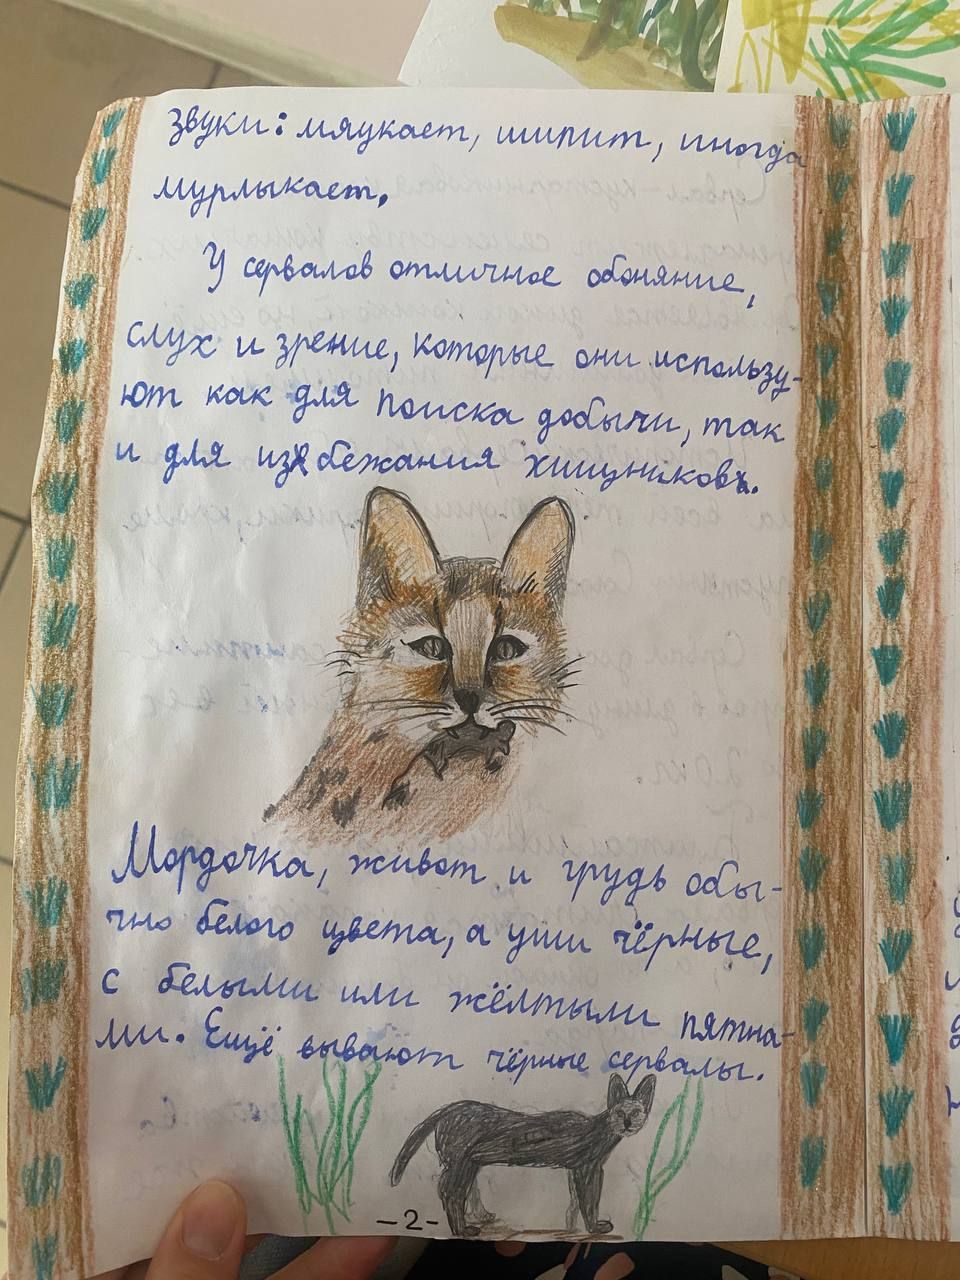 звуки: мяукает, шипит, иногда
мурлыкает.
У сервалов отличное обоняние,
слух и зрение, которые они использу-
ют как для поиска добычи, так
и для избежания хищников.
Мордочка, живот и грудь обы-
чно белого цвета, а уши чёрные,
с белыми или жёлтыми пятна-
ми. Ещё бывают чёрные сервалы.
-2-